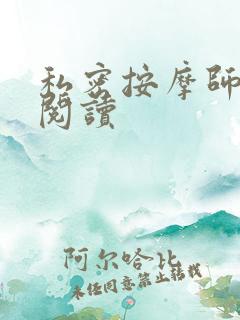 私密按摩師
閱讀
阿尔哈比
未经同意禁止转载